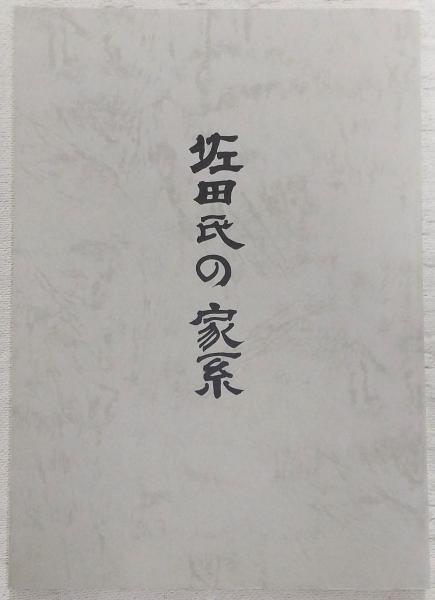 佐田氏の家系